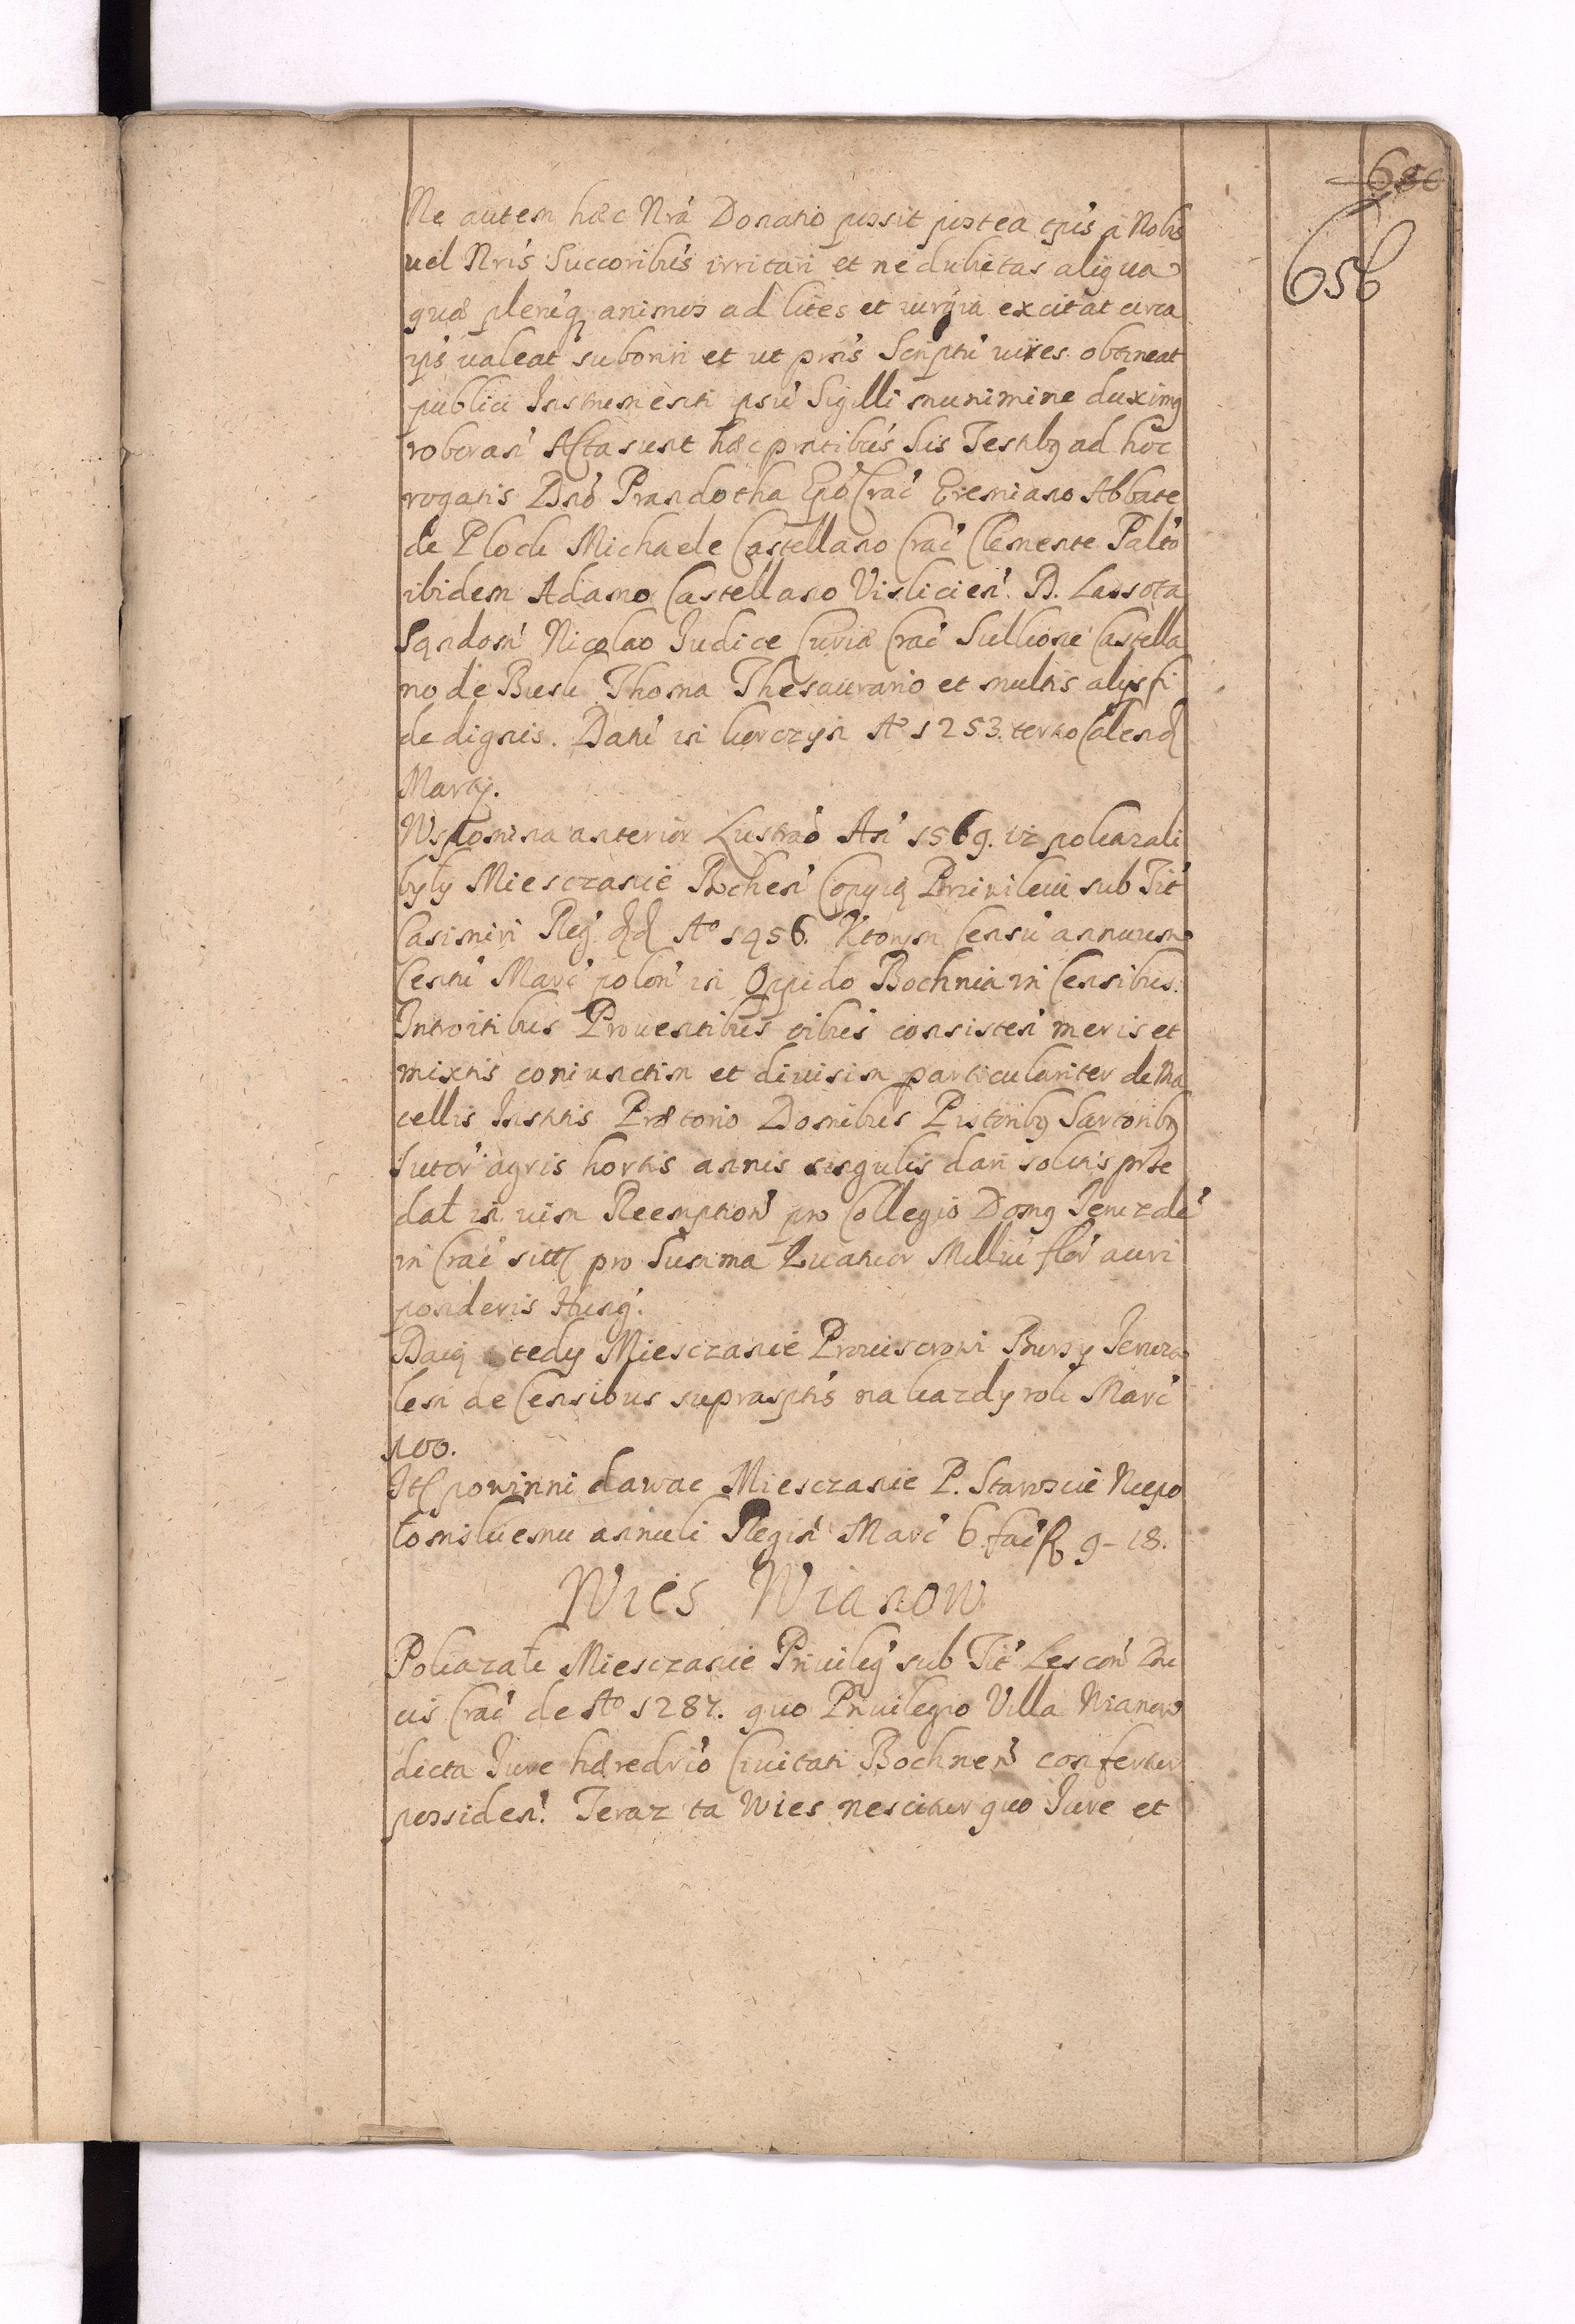 650
656
Ne autem hæc Nrá Donatio possit postea tpis á Nobis
uel Nris Succoribus irritari et ne dubietas aliqua
quæ pleriq animos ad lites et iurgia excitat circa
ips ualeat suboriri et ut pnis Scripti uires obtineat
publici Instrumenti ipsu Sigilli munimine duximq
roborari Acta sunt hæc pntibus his Testibq ad hoc
rogatis Dno Prandotha Epo Crac Eremiano Abbate
de Plock Michaele Castellano Crac Clemente Palto
ibidem Adamo Castellano Vislicien. D. Lassota
Sandom Nicolao Iudice Curiæ Crac Sulkone Castella
no de Busk Thoma Thesaurario et multis alijs fi
de dignis. Dani in korczyn Aº 1253. tertio Calend
Martij.
Wspomina anterior Lustrao An 1569. iz pokazali
byly Miesczanie Bochen Copyią Priuilem sub Tit
Casimiri Reg dd Aº 1456. Ktorym Censu annuum
Centu Marc polon in Oppido Bochnia in Censibus.
Introitibus Prouentibus oibus consisten meris et
mixtis coniunctim et diuisim particulariter de Ma
cellis Institis Prætorio Domibus Pistoribq Sartoribq
Sutor agris hortis annis singulis dari solitis prte
dat in uim Reemption pro Collegio Domq Jeruzale
in Crac sitt pro Summa Quatuor Millm flor auri
ponderis Hung.
Daią tedy Miesczanie Prouisorowi Bursy Jeruza
lem de Censibus suprasptis na kazdy rok Marc
100.
Itt powinni dawac Miesczanie P. Staroscie Niepo
lomskiemu annuli Regin Marc 6 fac fl 9-18.
Wies Wianow
Pokazali Miesczanie Priuileg sub Tit Lescon Du
cis Crac de Aº 1287. quo Priuilegio Villa Wianow
dicta Iure hæredrio Ciuitati Bochnen confertur
possiden. Teraz ta Wies nescitur quo Iure et